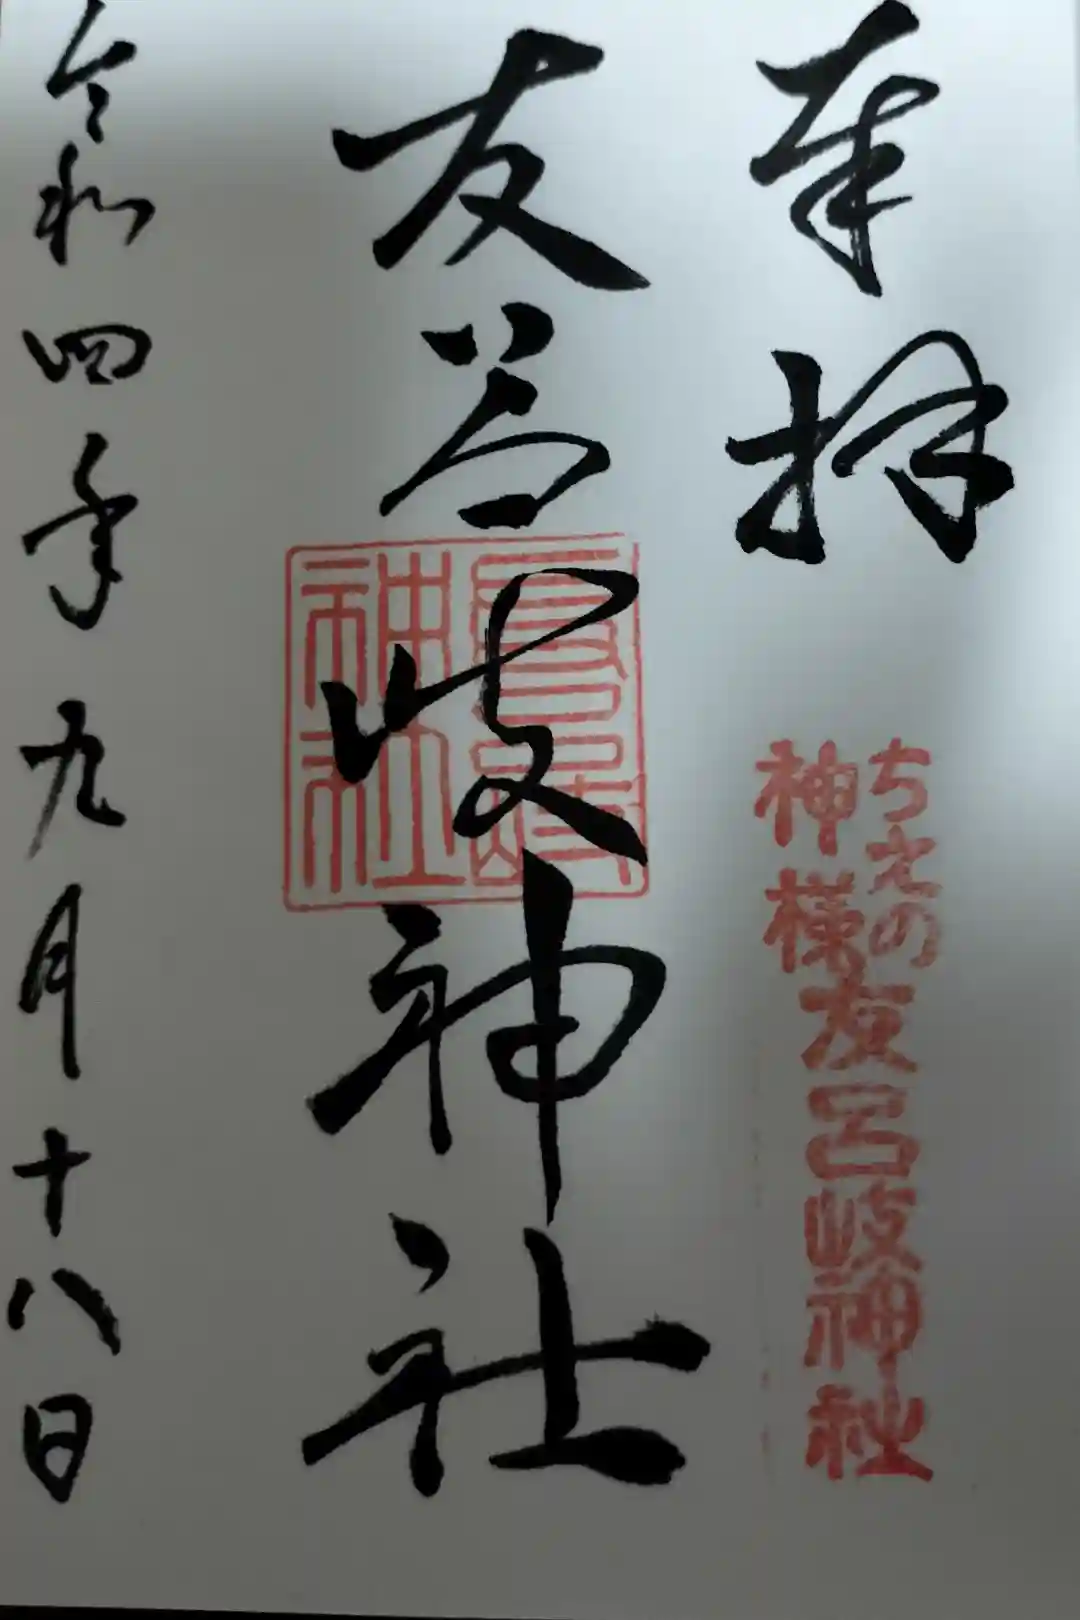 奉拝
ちえの
神様
友呂岐神社
友呂岐神社
神社
令和四年九月十八日